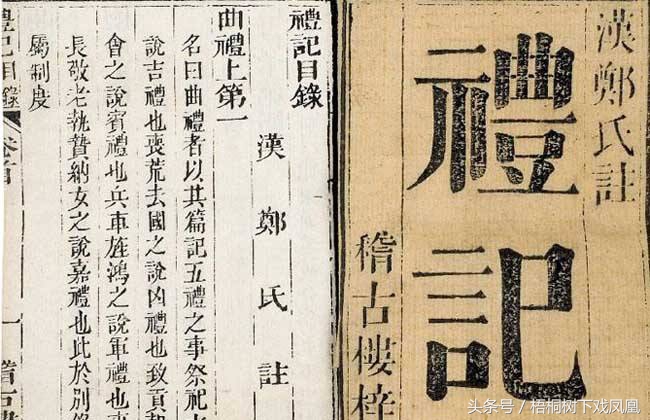 漢鄭氏註
禮記
稽古樓梓
禮記目錄
漢鄭氏註
曲禮上第一
名曰曲禮者以其篇記五禮之事祭祀
說吉禮也喪荒去國之說凶禮也致貢
會之說賓禮也兵車旌鴻之說軍禮也事
長敬老執贄納女之說嘉禮也此於別
屬制度
禮記目錄
一
頭条号／梧桐树下戏凤凰